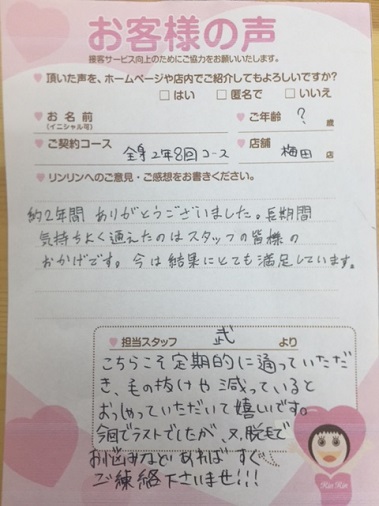 お客様の声
接客サービス向上のためにご協力をお願いいたします。
頂いた声を、ホームページや店内でご紹介してもよろしいですか?
はい 匿名で いいえ
お名前 ご年齢 ? 歳
(イニシャル可)
ご契約コース 全身2年8回コース 店舗 梅田店
リンリンへのご意見・ご感想をお書きください。
約2年間 ありがとうございました。長期間
気持ちよく通えたのはスタッフの皆様の
おかげです。今は結果にとても満足しています。
担当スタッフ 武 より
こちらこそ定期的に通っていただ
き、毛の抜けや減っていると
おっしゃっていただいて嬉しいです。
今回でラストでしたが、又、脱毛で
お悩みなどあれば すぐ
ご連絡下さいませ!!!
Rin Rin